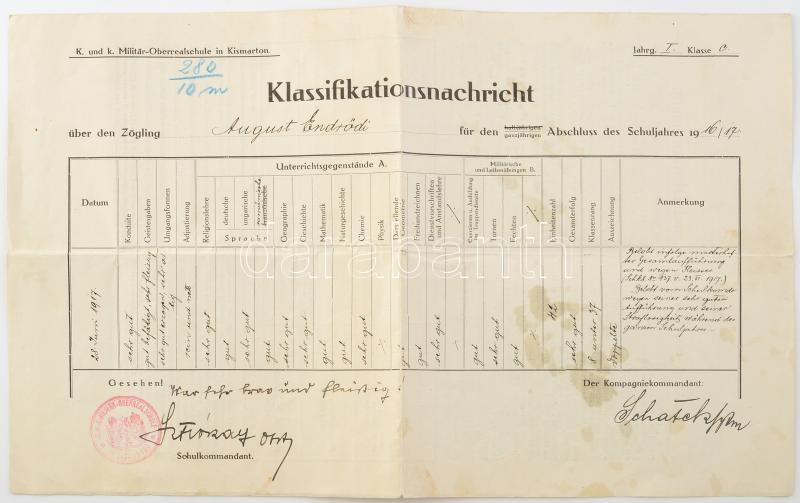 K. und k. Militär-Oberrealschule in Kismarton.
Jahrg. I. Klasse C.
280
10 m
Klassifikationsnachricht
über den Zögling August Endrődi für den halbjährigen ganzjährigen Abschluss des Schuljahres 1916/17.
Unterrichtsgegenstände A.
Militärische und Leibesübungen B.
Datum
Konduite
Geistesgaben
Umgangsformen
Adjustierung
Religionslehre
deutsche
ungarische
französische
Sprache
Geographie
Geschichte
Mathematik
Naturgeschichte
Chemie
Physik
Darstellende Geometrie
Freihandzeichnen
Dienstvorschriften und Anstandslehre
Exerzieren u. Ausbildung im Truppendienste
Turnen
Fechten
Einheitenzahl
Gesamterfolg
Klassenrang
Auszeichnung
Anmerkung
28. Juni 1917.
sehr gut
gut befähigt, sehr fleissig
sehr gut erzogen, sehr artig
rein und nett
sehr gut
gut
sehr gut
gut
sehr gut
sehr gut
gut
gut
sehr gut
gut
gut
sehr gut
gut
sehr gut
gut
42
sehr gut
8 unter 37
doppelte
Belobt infolge musterhafter Gesamtaufführung
und wegen Fleisses
Belobt vom Schulkmdo
wegen seiner sehr guten
Aufführung und seiner
Straflosigkeit während des
ganzen Schuljahres.
darabanth
Gesehen!
War sehr brav und fleissig!
Der Kompagniekommandant:
Schulkommandant.